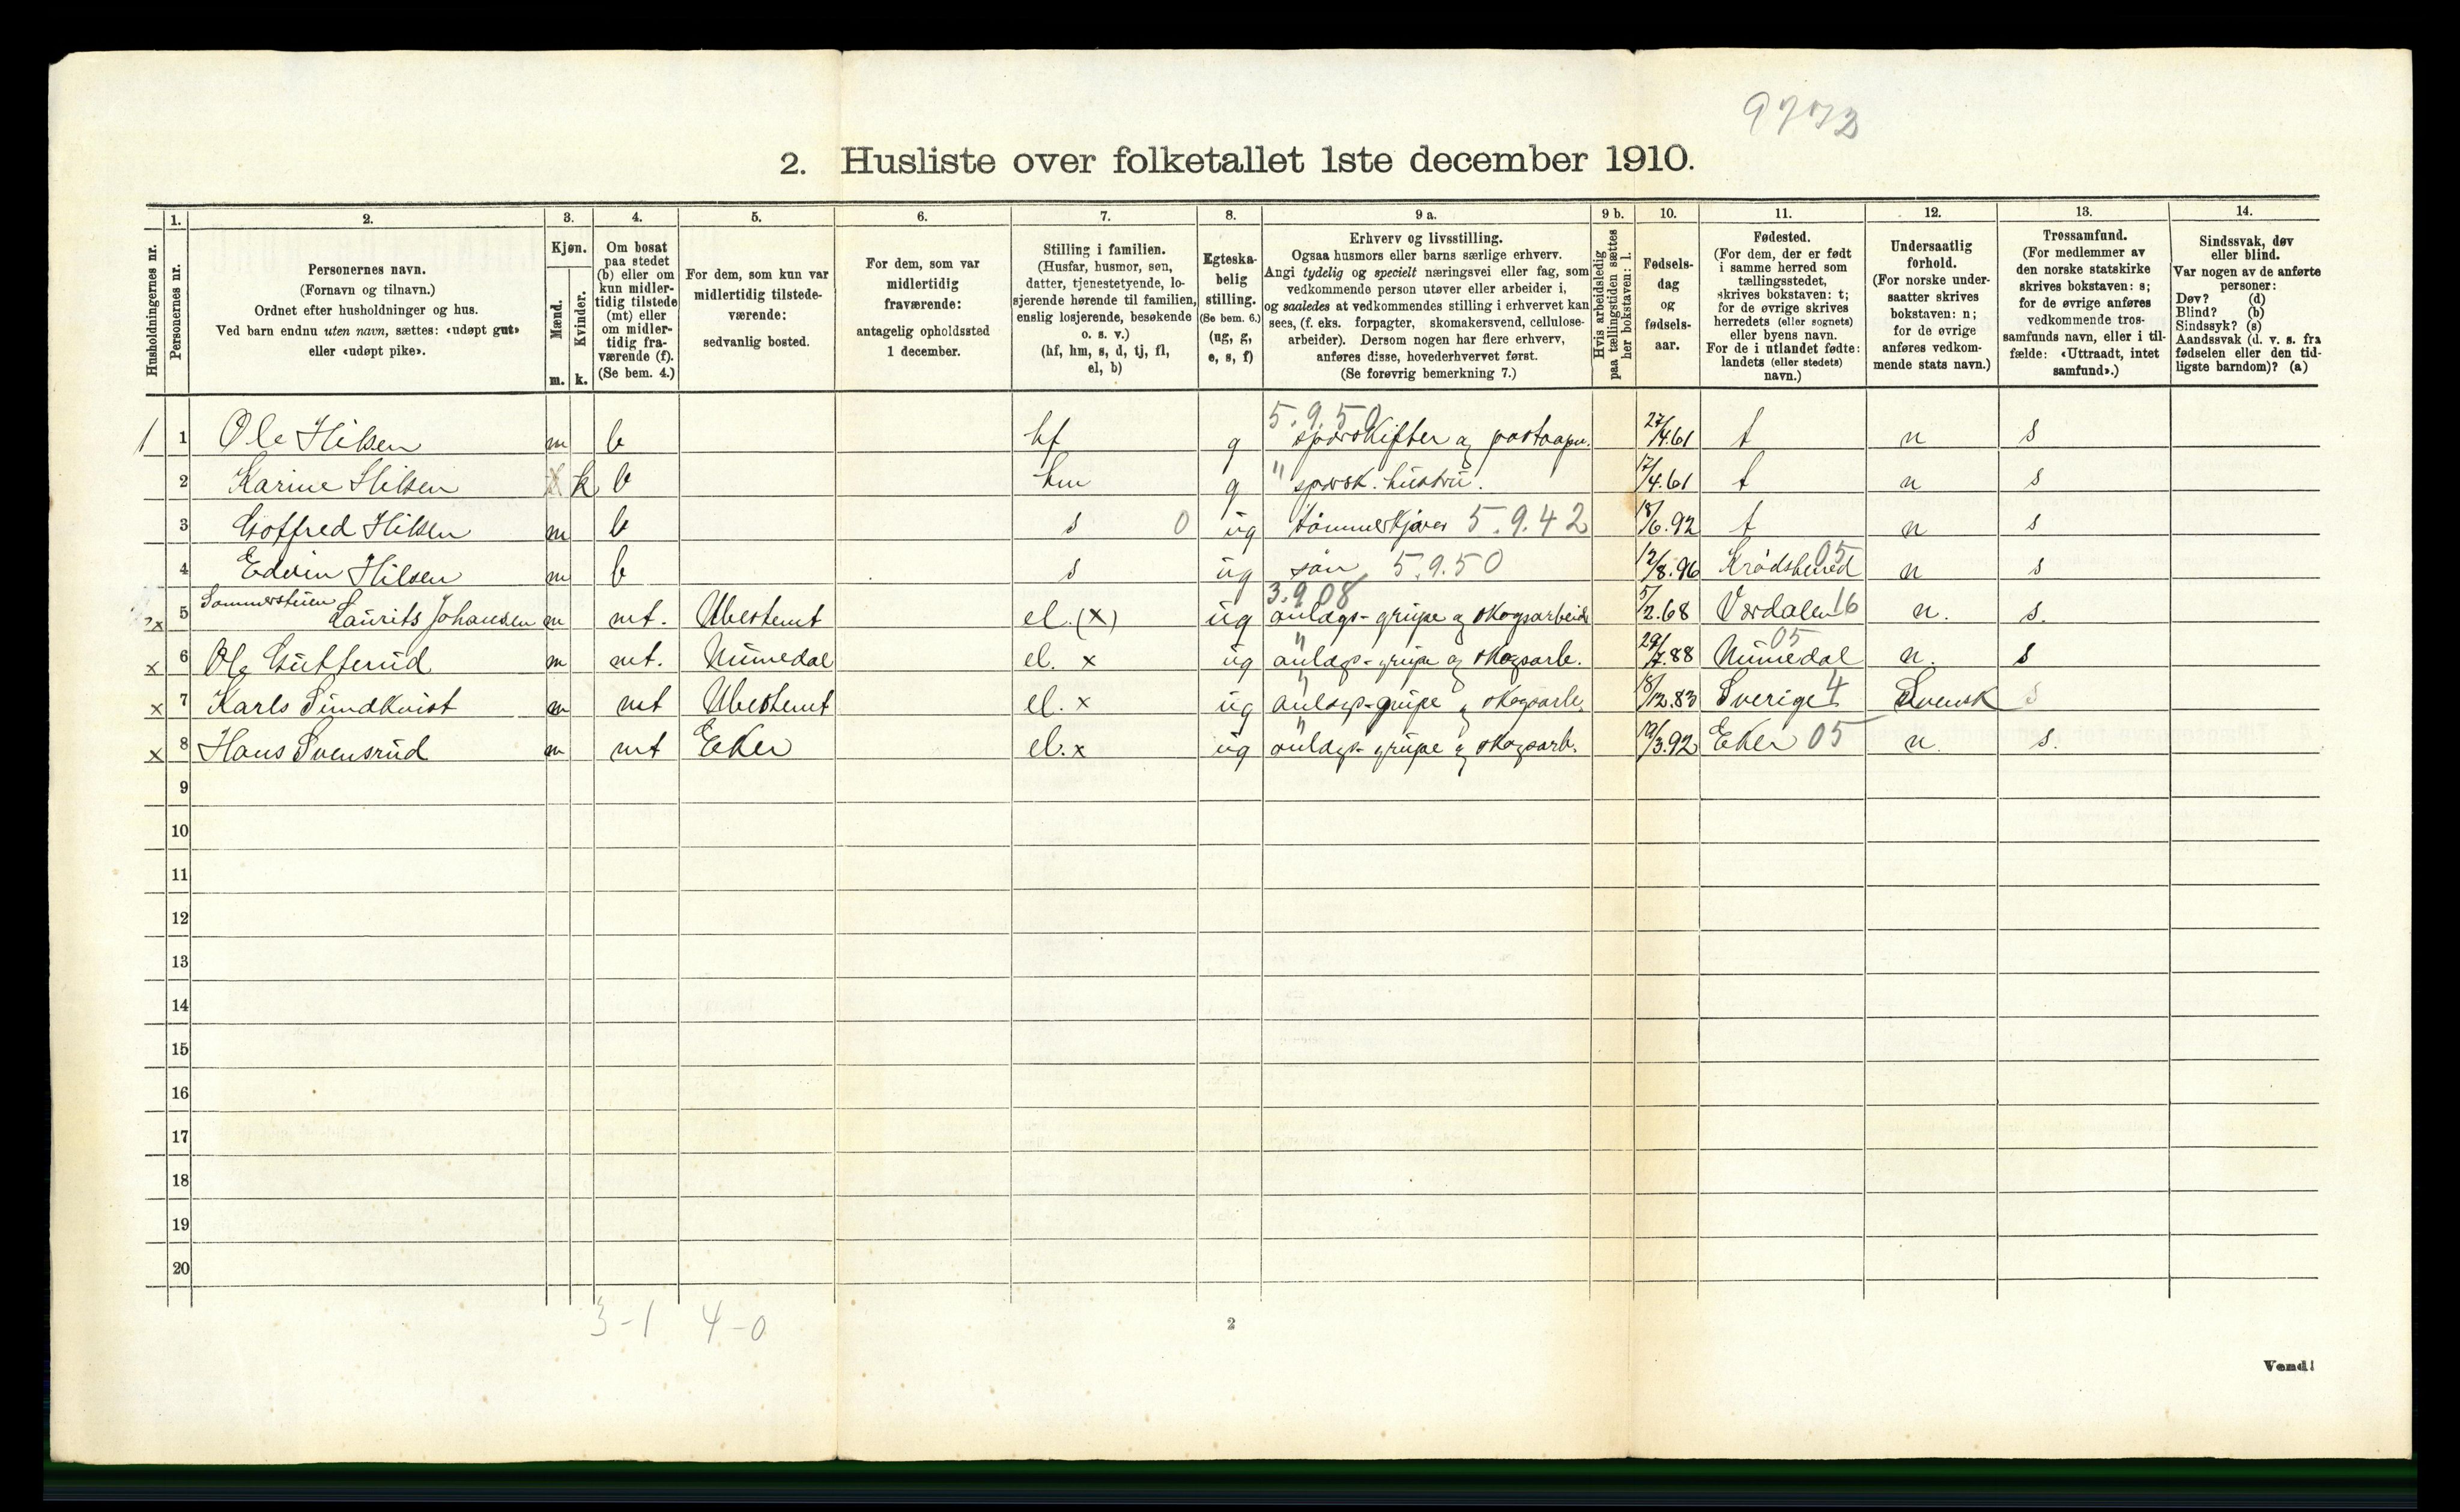 9772
2. Husliste over folketallet 1ste december 1910.
Husholdningernes nr.
1.
Personernes nr.
2.
Personernes navn.
(Fornavn og tilnavn.)
Ordnet efter husholdninger og hus.
Ved barn endnu uten navn, sættes: «udøpt gut»
eller «udøpt pike».
3.
Kjøn.
Mænd.
Kvinder.
m. k.
4.
Om bosat
paa stedet
(b) eller om
kun midler-
tidig tilstede
(mt) eller
om midler-
tidig fra-
værende (f).
(Se bem. 4.)
5.
For dem, som kun var
midlertidig tilstede-
værende:
sedvanlig bosted.
6.
For dem, som var
midlertidig
fraværende:
antagelig opholdssted
1 december.
7.
Stilling i familien.
(Husfar, husmor, søn,
datter, tjenestetyende, lo-
sjerende hørende til familien,
enslig losjerende, besøkende
o. s. v.)
(hf, hm, s, d, tj, fl,
el, b)
8.
Egteska-
belig
stilling.
(Se bem. 6.)
(ug, g,
e, s, f)
9 a.
Erhverv og livsstilling.
Ogsaa husmors eller barns særlige erhverv.
Angi tydelig og specielt næringsvei eller fag, som
vedkommende person utøver eller arbeider i,
og saaledes at vedkommendes stilling i erhvervet kan
sees, (f. eks. forpagter, skomakersvend, cellulose-
arbeider). Dersom nogen har flere erhverv,
anføres disse, hovederhvervet først.
(Se forøvrig bemerkning 7.)
9 b.
Hvis arbeidsledig
paa tællingstiden sættes
her bokstaven: l.
10.
Fødsels-
dag
og
fødsels-
aar.
11.
Fødested.
(For dem, der er født
i samme herred som
tællingsstedet,
skrives bokstaven: t;
for de øvrige skrives
herredets (eller sognets)
eller byens navn.
For de i utlandet fødte:
landets (eller stedets)
navn.)
12.
Undersaatlig
forhold.
(For norske under-
saatter skrives
bokstaven: n;
for de øvrige
anføres vedkom-
mende stats navn.)
13.
Trossamfund.
(For medlemmer av
den norske statskirke
skrives bokstaven: s;
for de øvrige anføres
vedkommende tros-
samfunds navn, eller i til-
fælde: «Uttraadt, intet
samfund».)
14.
Sindssvak, døv
eller blind.
Var nogen av de anførte
personer:
Døv? (d)
Blind? (b)
Sindssyk? (s)
Aandssvak (d. v. s. fra
fødselen eller den tid-
ligste barndom)? (a)
5.9.50
1 1 Ole Hilsen m b hf g sporskifter og postaapn. 27/4.61 t n s
2 Karine Hilsen k b hm g " sporsk. hustru. 17/4.61 t n s
3 Gotfred Hilsen m b s 0 ug tømmerkjører 5.9.42 18/6.92 t n s
4 Edvin Hilsen m b s ug søn 5.9.50 12/8.96 Krødsherred 05 n s
3.9.08
5 Laurits Johansen m mt. Ubestemt el. (x) ug anlægs-grupe og skogsarbeid 5/2.68 Værdalen 16 n. s.
x 6 Ole Gutterud m mt. Numedal el. x ug " anlægs-grupe og skogsarb. 29/7.88 Numedal 05 n. s
x 7 Karls Sundkvist m mt Ubestemt el. x ug " anlægs-grupe og skogsarb. 18/12.83 Sverige 4 Svensk s
x 8 Hans Svensrud m mt Eker el. x ug " anlægs-grupe og skogsarb. 19/3.92 Eker 05 n. s.
9
10
11
12
13
14
15
16
17
18
19
20
3-1 4-0
2
Vend!